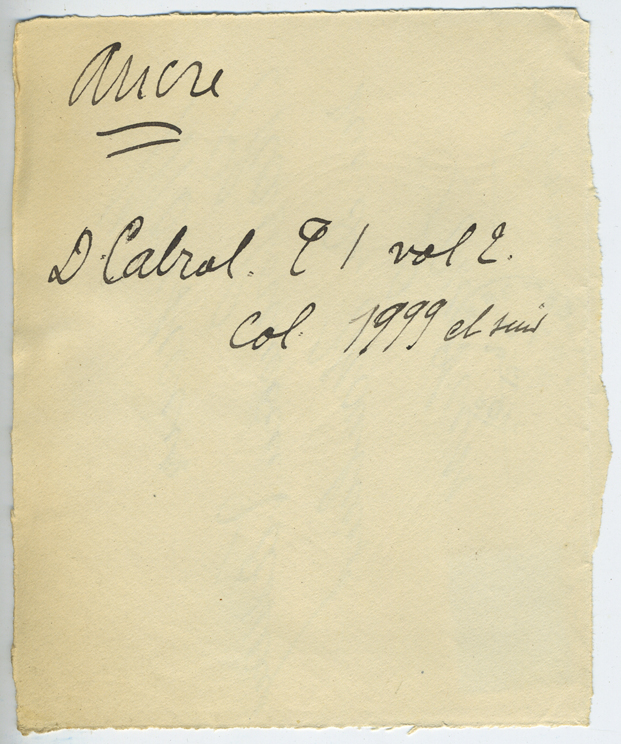 Ancre
D. Cabrol. T 1 vol 2.
Col. 1999 et suiv